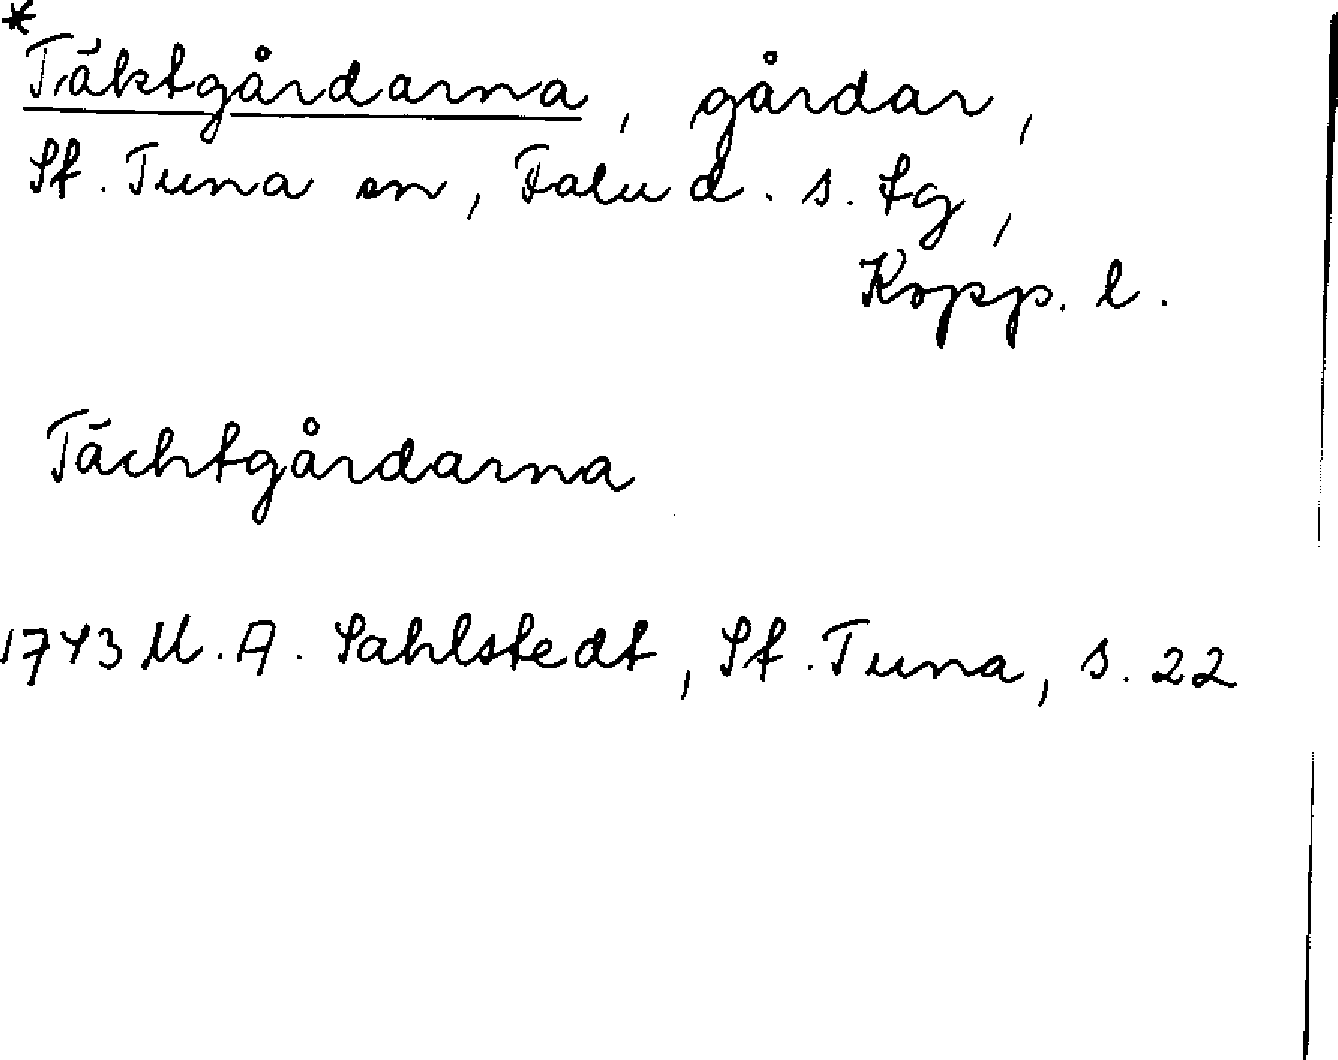 *
Täktgårdarna, gårdar,
St. Tuna sn, Falu d. s. tg,
Kopp. l.
Tächtgårdarna
1743 M. A. Sahlstedt, St. Tuna, s. 22